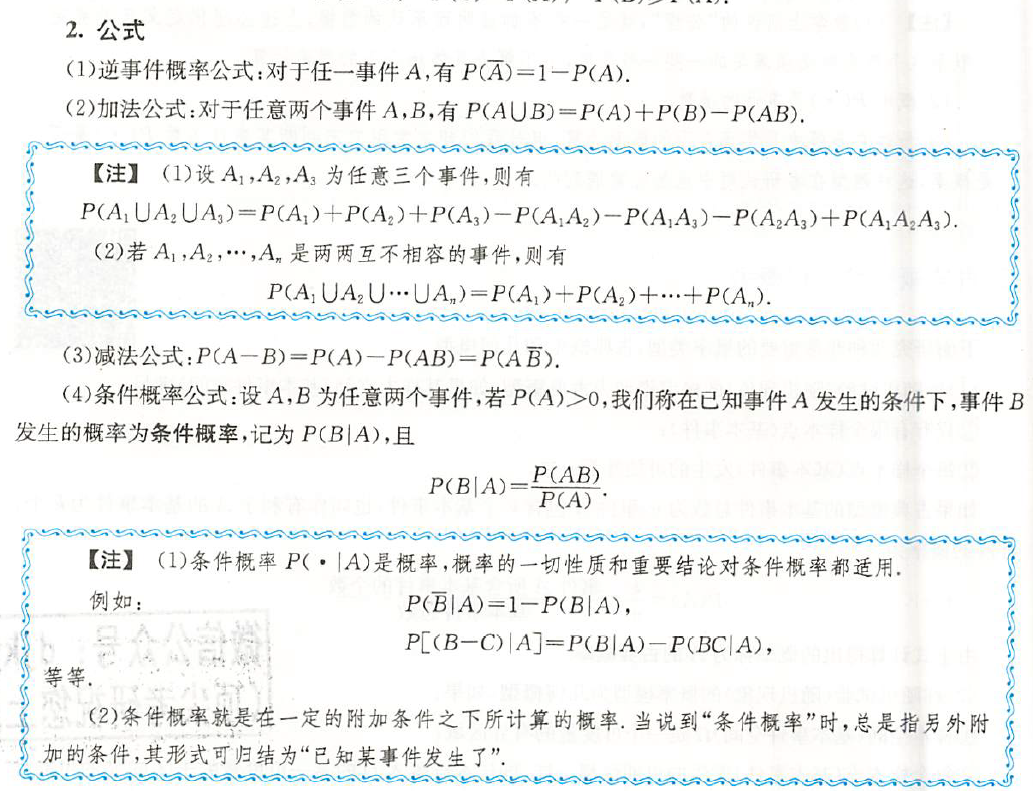 2. 公式
(1)逆事件概率公式:对于任一事件 A,有 P(A̅)=1−P(A).
(2)加法公式:对于任意两个事件 A,B,有 P(A∪B)=P(A)+P(B)−P(AB).
【注】 (1)设 A₁,A₂,A₃ 为任意三个事件,则有
P(A₁∪A₂∪A₃)=P(A₁)+P(A₂)+P(A₃)−P(A₁A₂)−P(A₁A₃)−P(A₂A₃)+P(A₁A₂A₃).
(2)若 A₁,A₂,⋯,Aₙ 是两两互不相容的事件,则有
P(A₁∪A₂∪⋯∪Aₙ)=P(A₁)+P(A₂)+⋯+P(Aₙ).
(3)减法公式:P(A−B)=P(A)−P(AB)=P(AB̅).
(4)条件概率公式:设 A,B 为任意两个事件,若 P(A)>0,我们称在已知事件 A 发生的条件下,事件 B
发生的概率为条件概率,记为 P(B|A),且
P(B|A)=P(AB)/P(A).
【注】 (1)条件概率 P(·|A)是概率,概率的一切性质和重要结论对条件概率都适用.
例如:
P(B̅|A)=1−P(B|A),
P[(B−C)|A]=P(B|A)−P(BC|A),
等等.
(2)条件概率就是在一定的附加条件之下所计算的概率. 当说到“条件概率”时,总是指另外附
加的条件,其形式可归结为“已知某事件发生了”.